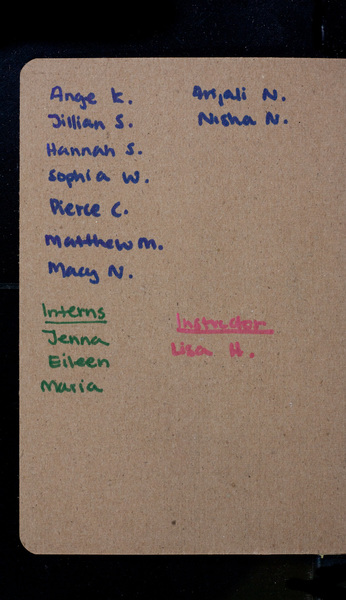 Ange K.
Jillian S.
Hannah S.
Sophia W.
Pierce C.
Matthew M.
Macy N.
Anjali N.
Nisha N.
Interns
Jenna
Eileen
Maria
Instructor
Lisa H.